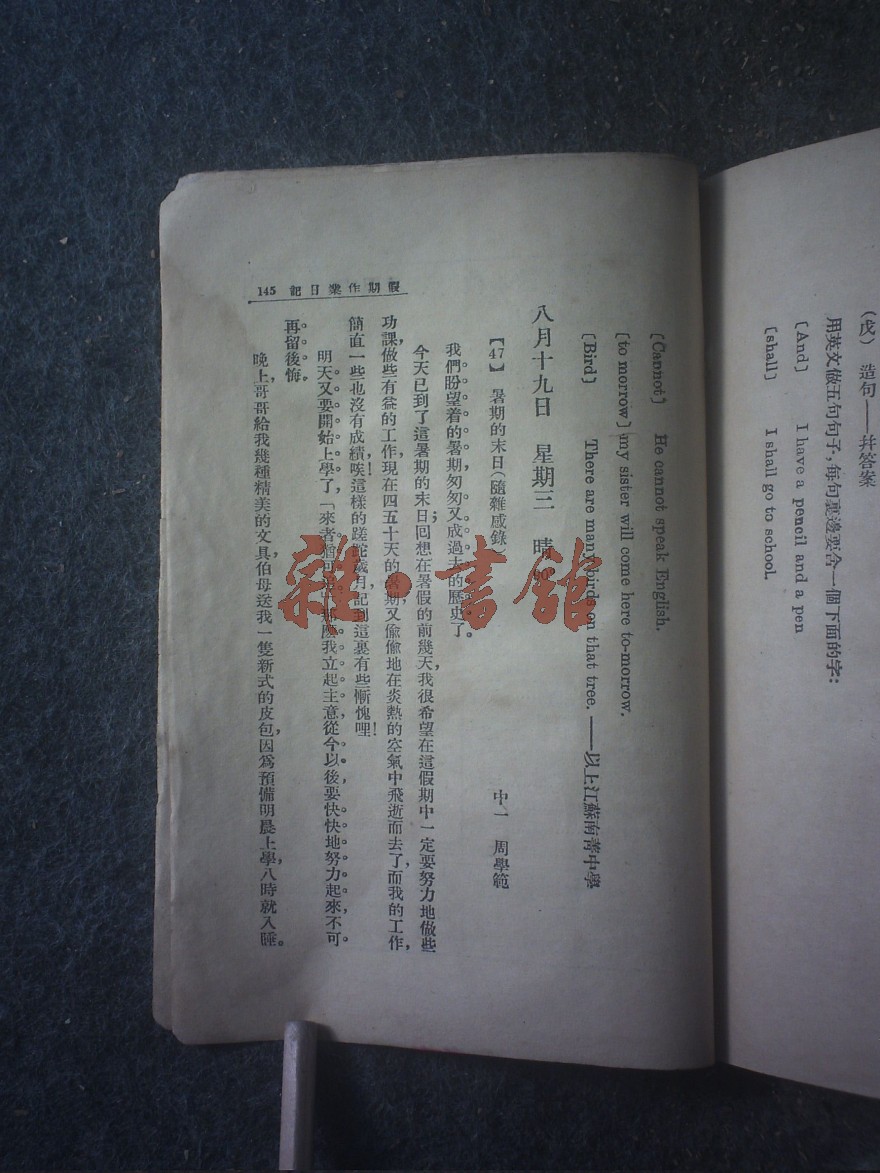 (戊) 造句——幷答案
用英文做五句句子，每句裏邊要含一個下面的字：
〔And〕 I have a pencil and a pen
〔shall〕 I shall go to school.
〔Cannot〕 He cannot speak English.
〔to morrow〕 my sister will come here to-morrow.
〔Bird〕 There are many birds on that tree. ——以上江蘇南菁中學
八月十九日 星期三 晴
【47】 暑期的末日(隨雜感錄) 中一 周學範
我們盼望着的暑期，匆匆又成過去的歷史了。
今天已到了這暑期的末日；回想在暑假的前幾天，我很希望在這假期中一定要努力地做些
功課，做些有益的工作，現在四五十天的暑期，又偷偷地在炎熱的空氣中飛逝而去了，而我的工作，
簡直一些也沒有成績，唉！這樣的蹉跎歲月，記到這裏有些慚愧哩！
明天又要開始上學了，「來者猶可 我立起主意，從今以後，要快快地努力起來，不可
再留後悔。
晚上，哥哥給我幾種精美的文具，伯母送我一隻新式的皮包，因爲預備明晨上學，八時就入睡。
假期作業日記 145
雜·書館